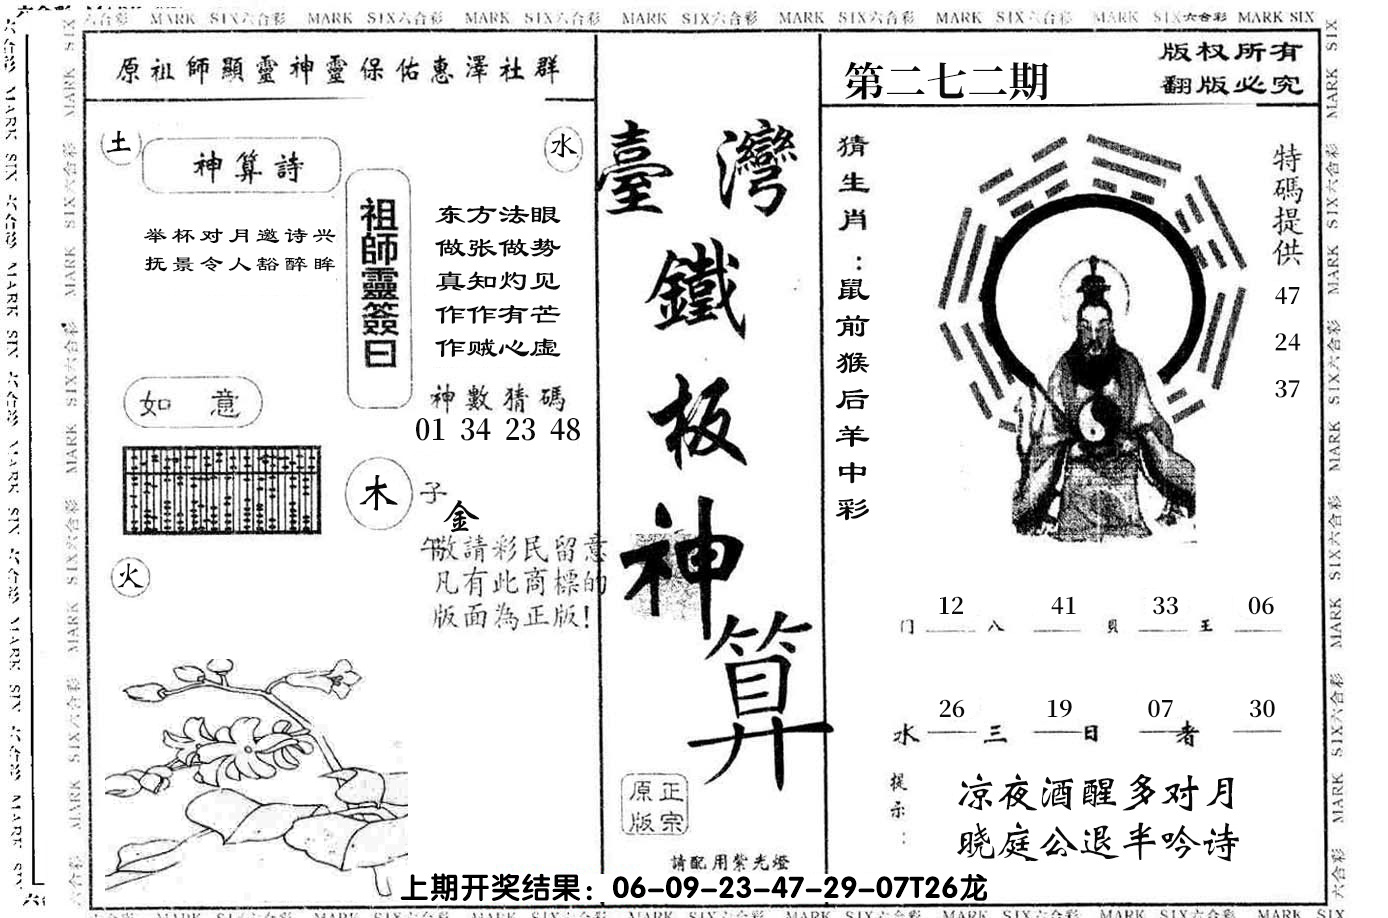 MARK SIX六合彩 MARK SIX六合彩 MARK SIX六合彩 MARK SIX六合彩 MARK SIX六合彩 MARK SIX六合彩 MARK SIX六合彩 MARK SIX
原祖師顯靈神靈保佑惠澤社群
土
神算詩
水
举杯对月邀诗兴
抚景令人豁醉眸
祖師靈簽曰
东方法眼
做张做势
真知灼见
作作有芒
作贼心虚
如意
神數猜碼
01 34 23 48
木
子
金
午敬請彩民留意
凡有此商標的
版面為正版!
火
臺灣
鐵
板
神
算
正宗
原版
請配用紫光燈
第二七二期
版权所有
翻版必究
猜生肖:鼠前猴后羊中彩
特碼提供
47
24
37
12 41 33 06
门 八 貝 王
26 19 07 30
水 三 日 者
提示:
凉夜酒醒多对月
晓庭公退半吟诗
上期开奖结果：06-09-23-47-29-07T26龙